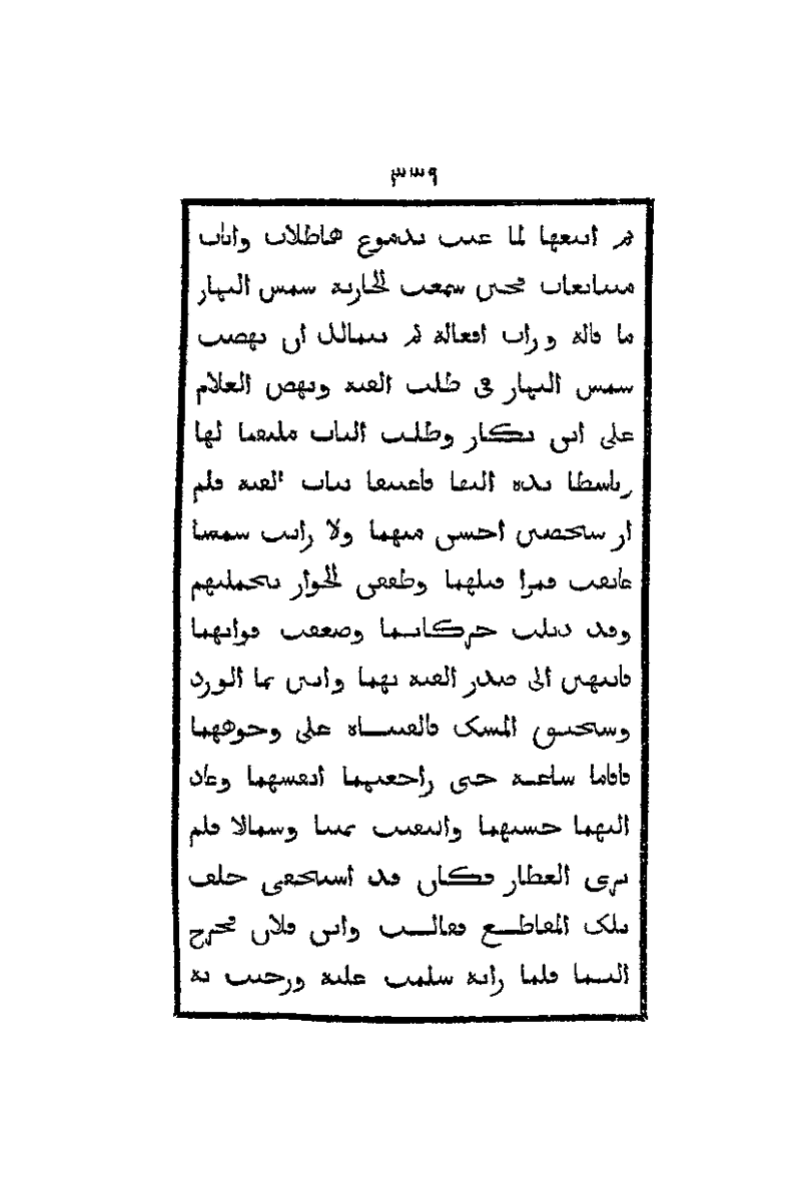 ٣٣٩
ثم اتبعها لما غنت بدموع هاطلات وانات
متتابعات فحين سمعت الجارية شمس النهار
ما قاله و رات افعاله ثم تتمالك ان نهضت
شمس النهار في طلب القبة ونهض الغلام
علي ابن بكار وطلب الباب ملتقيا لها
باسطا يده التقا فاعتنقا بباب القبة فلم
ار شخصين احسن منهما ولا رايت شمسا
عانقت قمرا قبلهما وطفقن الجوار يحملنهم
وقد ذبلت حركاتهما وضعفت قواتهما
فانتهين الى صدر القبة بهما واتين بما الورد
وسحيق المسك فالقيناه على وجوههما
فاقاما ساعة حتى راجعتهما انفسهما وعاد
اليهما حسيهما والتفتت يمينا وشمالا فلم
ترى العطار فكان قد استخفى خلف
تلك المقاطع فقالت واين فلان فخرج
اليهما فلما راته سلمت عليه ورحبت به